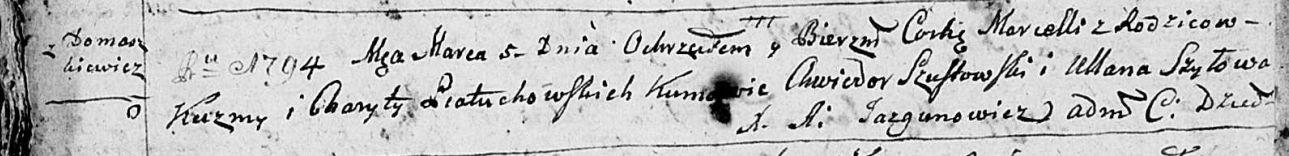 z Domasz
kiewicz
Ru 1794 Mca Marca 5 Dnia Ochrzciłem y Bierzm Corkę Marcelli z Rodzicow
Kuzmy i Charyty Piatuchowskich Kumowie Chwiedor Szustowski i Ullana Szyłowa
X. A: Jazgunowicz adm C: Dzied